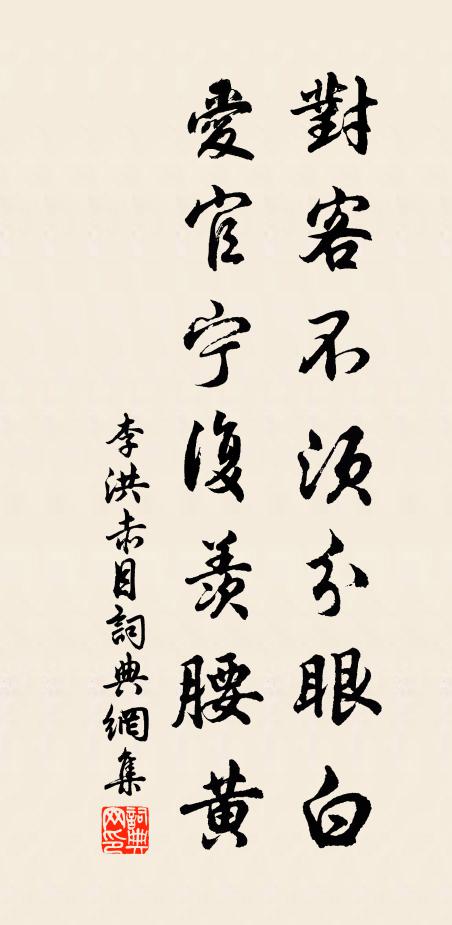 對客不須分眼白
愛官宁復羨腰黄
李洪赤目詞典網集
詞典网印